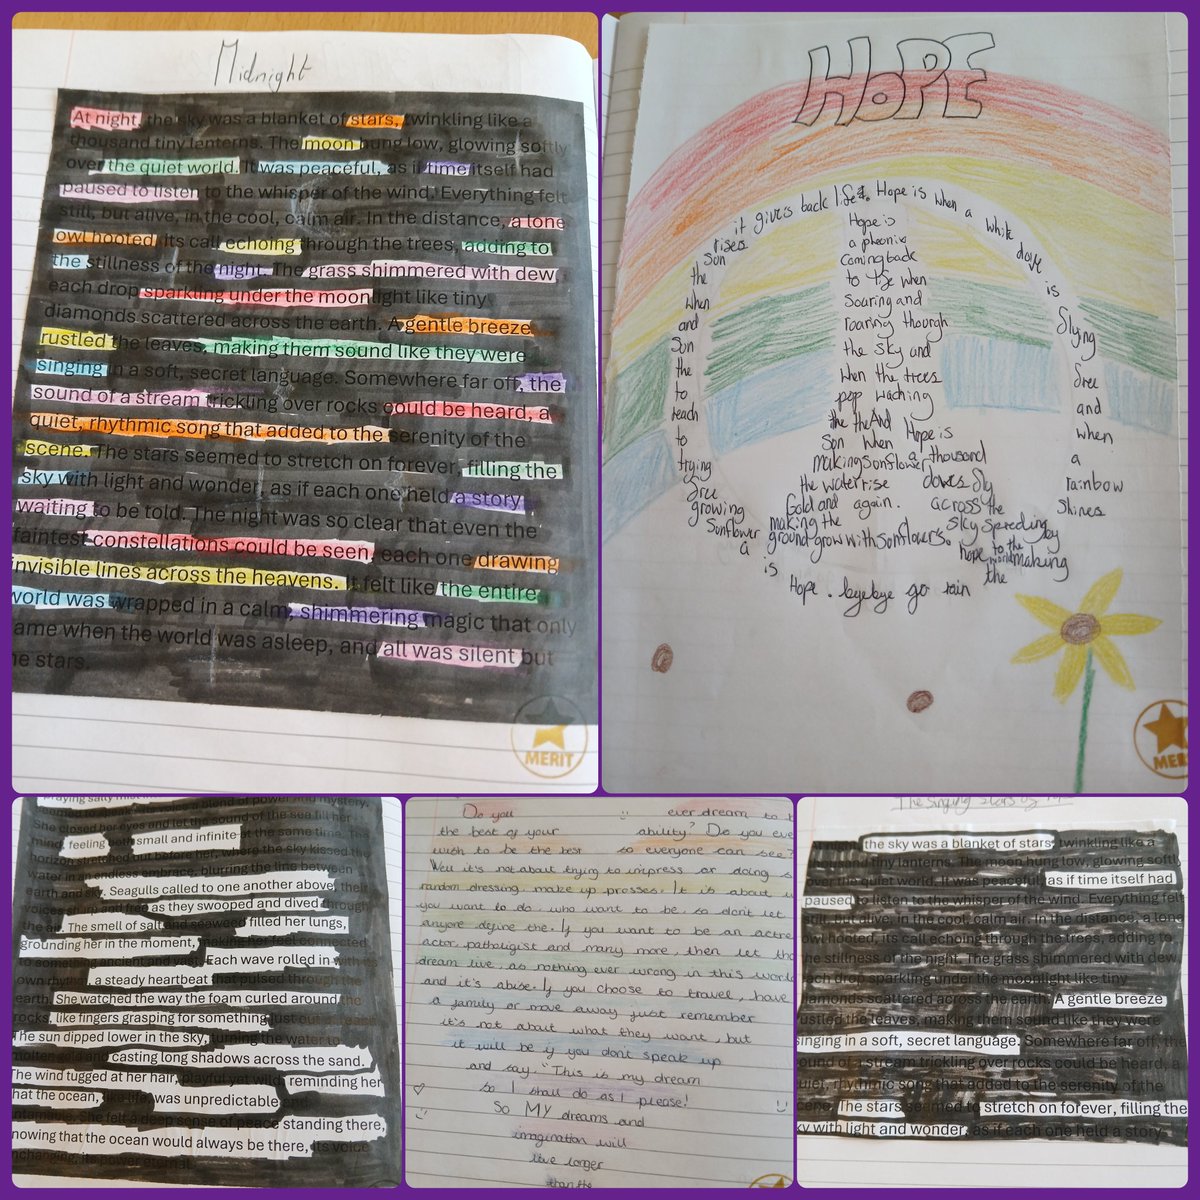 Midnight
At night, the sky was a blanket of stars, twinkling like a
thousand tiny lanterns. The moon hung low, glowing softly
over the quiet world. It was peaceful, as if time itself had
paused to listen to the whisper of the wind. Everything felt
still, but alive, in the cool, calm air. In the distance, a lone
owl hooted, its call echoing through the trees, adding to
the stillness of the night. The grass shimmered with dew
each drop sparkling under the moonlight like tiny
diamonds scattered across the earth. A gentle breeze
rustled the leaves, making them sound like they were
singing in a soft, secret language. Somewhere far off, the
sound of a stream trickling over rocks could be heard, a
quiet, rhythmic song that added to the serenity of the
scene. The stars seemed to stretch on forever, filling the
sky with light and wonder, as if each one held a story
waiting to be told. The night was so clear that even the
faintest constellations could be seen, each one drawing
invisible lines across the heavens. It felt like the entire
world was wrapped in a calm, shimmering magic that only
ame when the world was asleep, and all was silent but
he stars.
MERIT
HOPE
Hope is when a white dove is flying free and when a rainbow shines
Hope is
a pheonix
coming back
to life when
Souring and
roaring though
the sky and
when the trees
pop waching
the the And
son when Hope is
making sonflower a thousand
the water rise doves fly
Gold and again. across the
making the sky spreding by
ground grow with sonflowers. hope to the world making
the
Hope. byebye go rain
is
a
Sonflower
growing
free
trying
to
reach
to
the
son
and
when
the
son
rises
it give's back life.
MERIT
praying salty mist
seemed to a blend of power and mystery.
She closed her eyes and let the sound of the sea fill her
mind, feeling both small and infinite at the same time. The
horizon stretched out before her, where the sky kissed the
water in an endless embrace, blurring the line between
earth and sky. Seagulls called to one another above, their
voices sharp and free as they swooped and dived through
the air. The smell of salt and seaweed filled her lungs,
grounding her in the moment, making her feel connected
to something ancient and vast. Each wave rolled in with its
own rhythm, a steady heartbeat that pulsed through the
earth. She watched the way the foam curled around the
rocks, like fingers grasping for something just out of reach
The sun dipped lower in the sky, turning the water to
molten gold and casting long shadows across the sand.
The wind tugged at her hair, playful yet wild, reminding her
that the ocean, like life, was unpredictable and
untamable. She felt a deep sense of peace standing there,
nowing that the ocean would always be there, its voice
nchanging, its power eternal.
Do you ever dream to b
the best of your ability? Do you eve
wish to be the best so everyone can see?
Well it's not about trying to impress or doing s
random dressing, make up presses. It is about w
you want to do, who want to be, so don't let
anyone define the. If you want to be an actre
actor, pathologist and many more, then let the
dream live, as nothing ever wrong in this worl
and it's abuse. If you choose to travel, have
a family or move away just remember
it's not about what they want, but
it will be if you dont speak up
and say. "This is my dream
so I shall do as I please!
So MY dreams and
imagination will
live longer
than the
The Singing stars of
the sky was a blanket of stars, twinkling like a
thousand tiny lanterns. The moon hung low, glowing softly
over the quiet world. It was peaceful, as if time itself had
paused to listen to the whisper of the wind. Everything felt
still, but alive, in the cool, calm air. In the distance, a lone
owl hooted, its call echoing through the trees, adding to
he stillness of the night. The grass shimmered with dew
each drop sparkling under the moonlight like tiny
diamonds scattered across the earth. A gentle breeze
rustled the leaves, making them sound like they were
singing in a soft, secret language. Somewhere far off, the
ound of a stream trickling over rocks could be heard, a
quiet, rhythmic song that added to the serenity of the
cene. The stars seemed to stretch on forever, filling the
ky with light and wonder, as if each one held a story